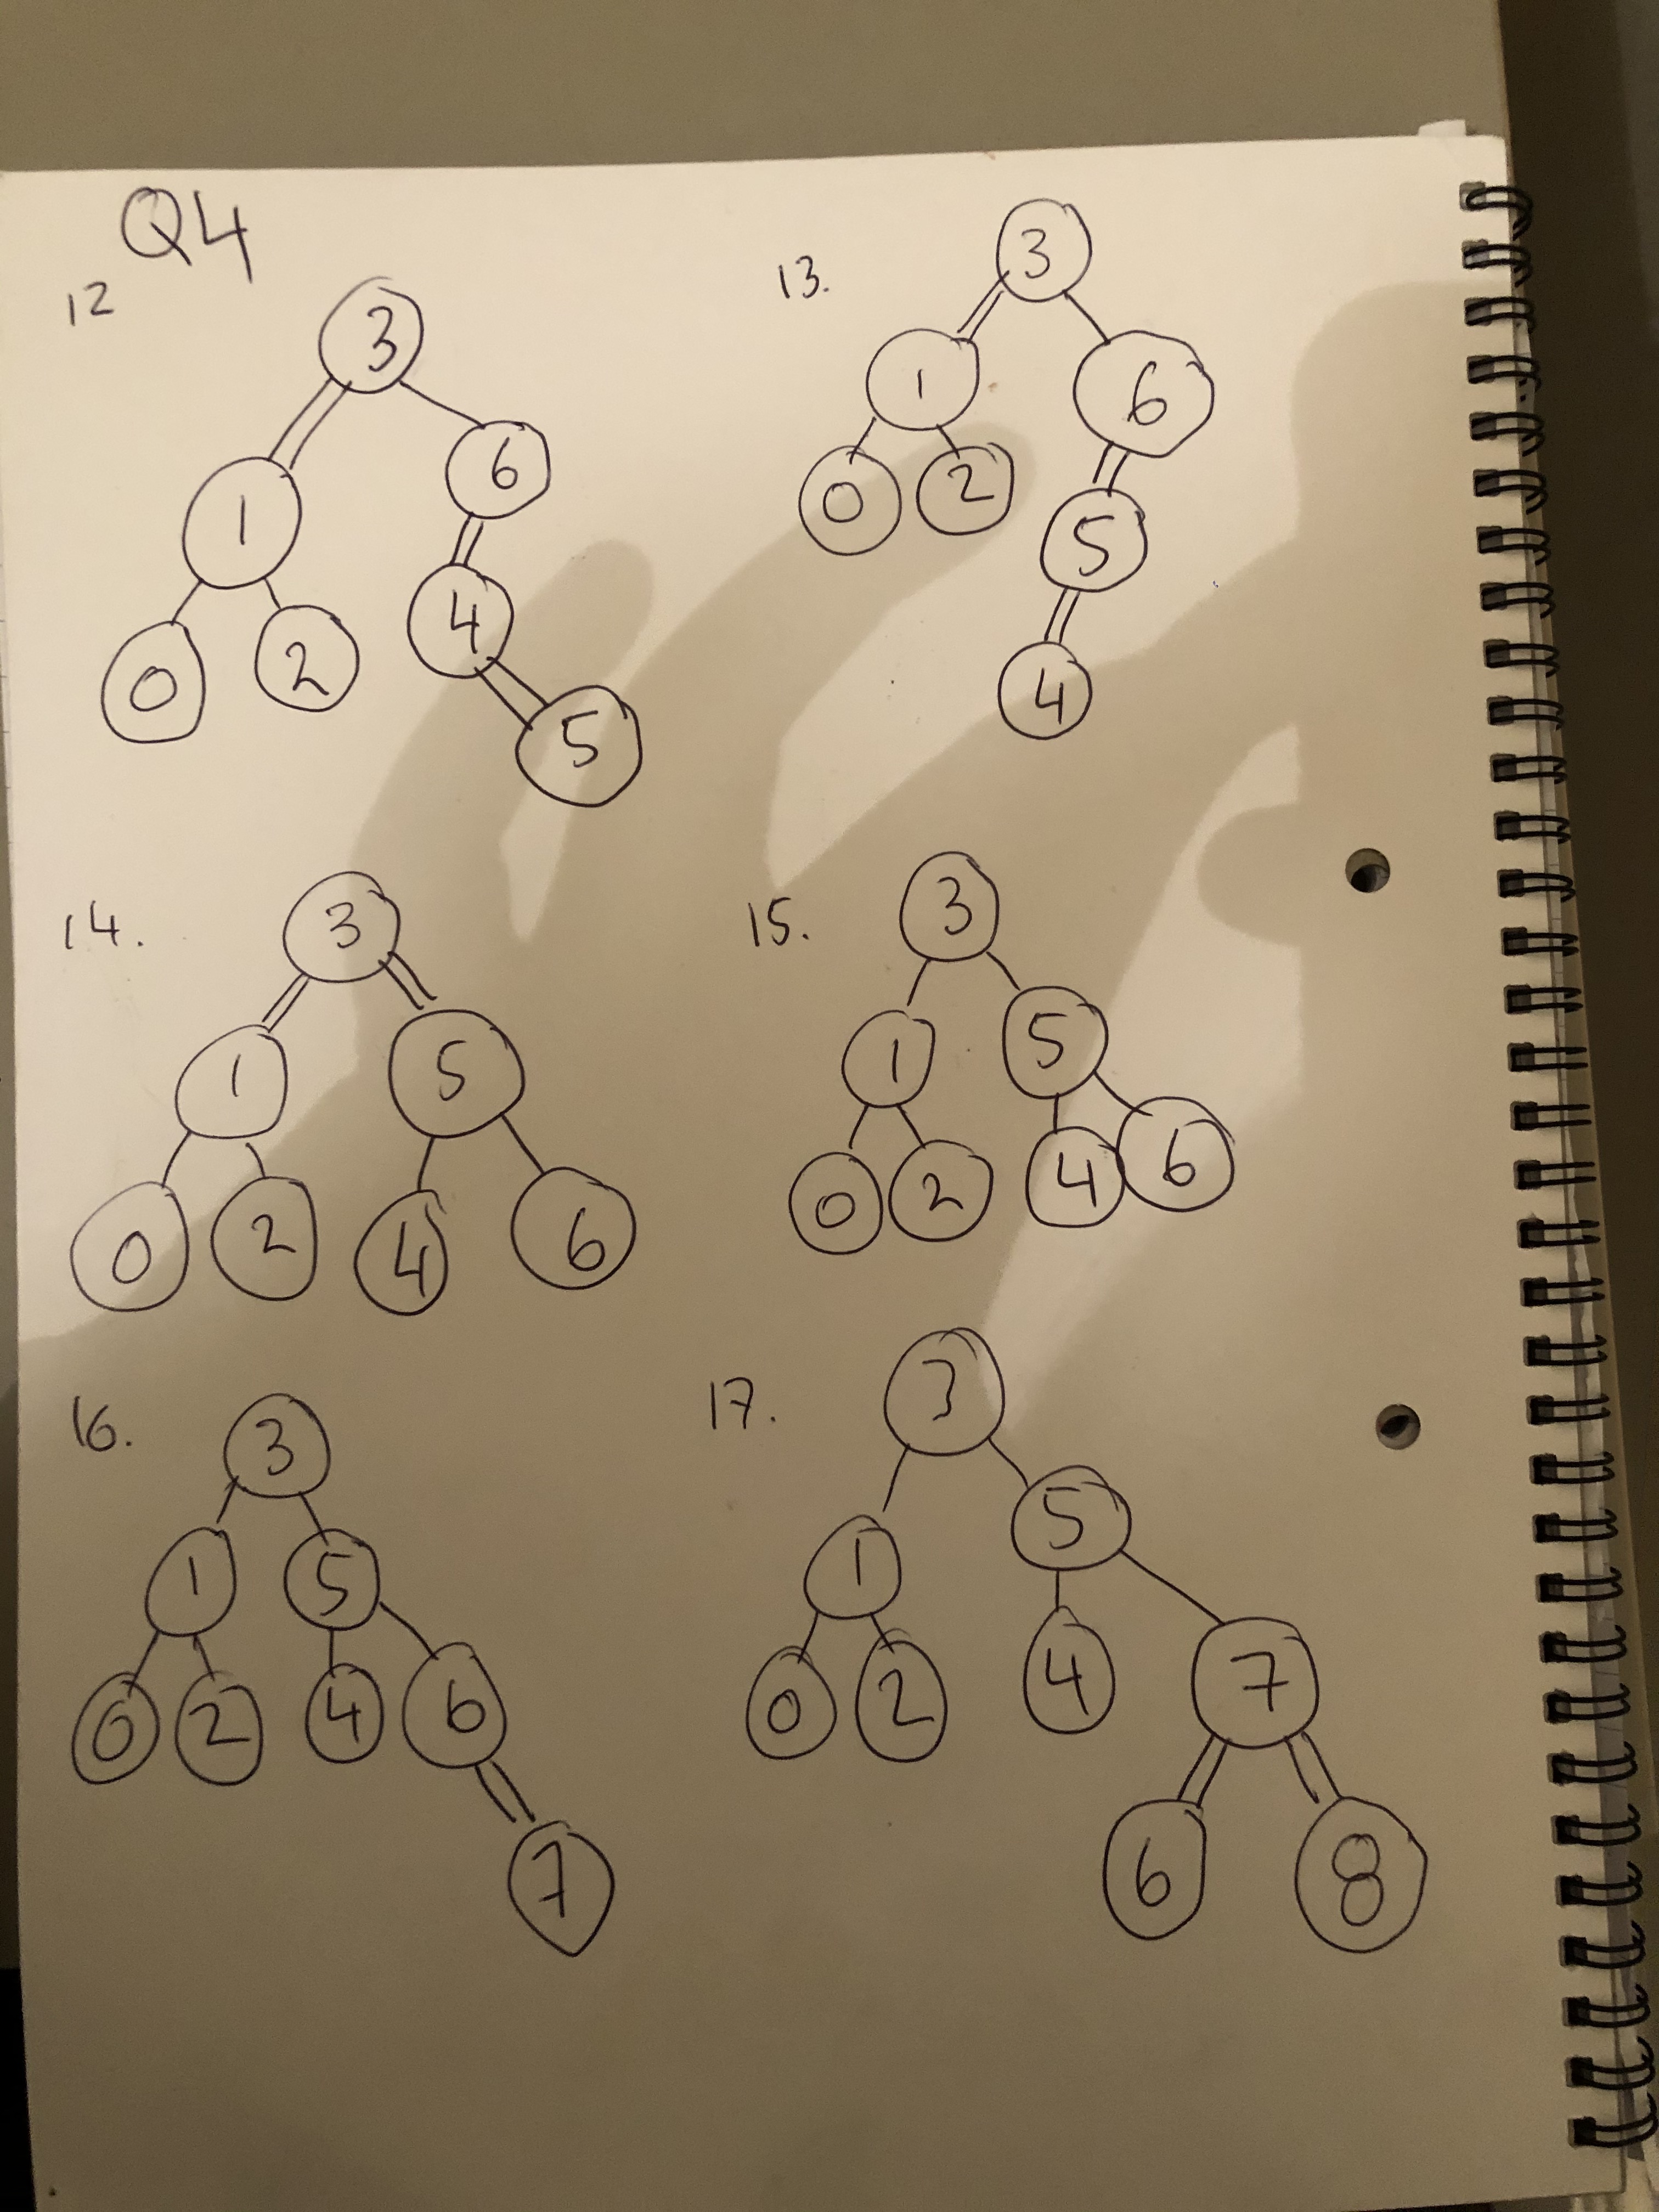 Q4
12
3
1 6
0 2 4
5
13.
3
1 6
0 2 5
4
14.
3
1 5
0 2 4 6
15.
3
1 5
0 2 4 6
16.
3
1 5
0 2 4 6
7
17.
3
1 5
0 2 4 7
6 8